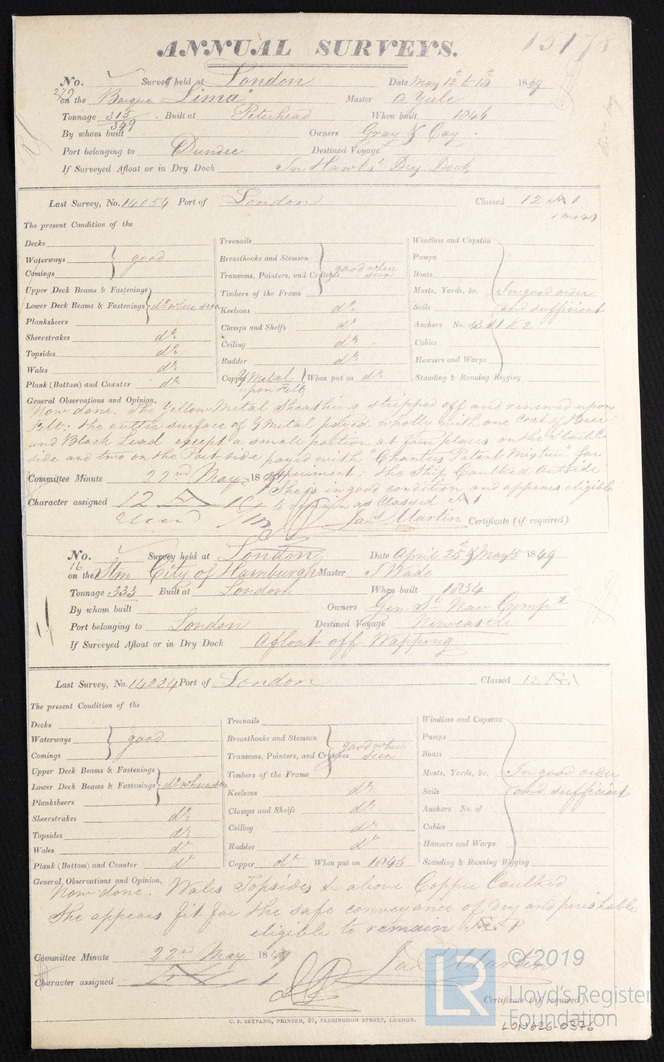 15178
ANNUAL SURVEYS.
No. 279 Survey held at London Date May 12th to 18th 1849
on the Barque "Lima" Master A Yule
Tonnage 315 349 Built at Peterhead When built 1846
By whom built Owners Gray & Coy
Port belonging to Dundee Destined Voyage
If Surveyed Afloat or in Dry Dock In Hawks' Dry Dock
Last Survey, No. 14054 Port of London Classed 12 A 1
The present Condition of the
Decks
Waterways good
Comings
Upper Deck Beams & Fastenings
Lower Deck Beams & Fastenings do where seen
Planksheers
Sheerstrakes do
Topsides do
Wales do
Plank (Bottom) and Counter do
Treenails
Breasthooks and Stemson
Transoms, Pointers, and Crutches good where seen
Timbers of the Frame
Keelsons do
Clamps and Shelfs do
Ceiling do
Rudder do
Copper Y Metal upon Felt When put on do
Windlass and Capstan
Pumps
Boats
Masts, Yards, &c. In good order
Sails and sufficient
Anchors No.
Cables
Hawsers and Warps
Standing & Running Rigging
General Observations and Opinion,
Now done. The Yellow Metal Sheathing stripped off and renewed upon
Felt; the outer surface of Y Metal payed wholly with one Coat of
and Black Lead except a small portion at four places on the Starbd
side and two on the Port side payed with "Patent Mixture" for
Committee Minute 22nd May 1849 experiment. The Ship Caulked outside
Ship is in good condition and appears eligible
Character assigned 12 A 1 to remain as Classed A 1
Jas Martin Certificate (if required)
No. 16 Survey held at London Date April 25th & May 8 1849
on the Stm City of Hamburgh Master J Wade
Tonnage 333 Built at London When built 1834
By whom built Owners Genl St. Nav Compy
Port belonging to London Destined Voyage Newcastle
If Surveyed Afloat or in Dry Dock Afloat off Wapping
Last Survey, No. 14224 Port of London Classed 12 A 1
The present Condition of the
Decks
Waterways good
Comings
Upper Deck Beams & Fastenings
Lower Deck Beams & Fastenings do where seen
Planksheers
Sheerstrakes do
Topsides do
Wales do
Plank (Bottom) and Counter do
Treenails
Breasthooks and Stemson
Transoms, Pointers, and Crutches good where seen
Timbers of the Frame
Keelsons do
Clamps and Shelfs do
Ceiling do
Rudder do
Copper do When put on 1846
Windlass and Capstan
Pumps
Boats
Masts, Yards, &c. In good order
Sails and sufficient
Anchors No. of
Cables
Hawsers and Warps
Standing & Running Rigging
General Observations and Opinion,
Now done. Wales Topsides & above Copper Caulked
She appears fit for the safe conveyance of dry and perishable
eligible to remain
Committee Minute 22nd May 1849
Jas Martin
Character assigned
Certificate (if required)
C. F. SEYFANG, PRINTER, 57, FARRINGDON STREET, LONDON.
LR ©2019
Lloyd's Register
Foundation
LON626-0376